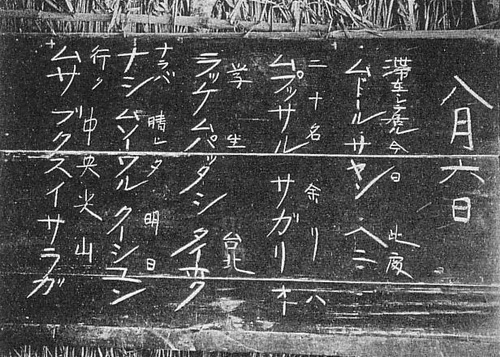 八月六日
滞在 今日 此度
ムドールサヤン ヘニ
二十名 余リ ハ
ムプッサル サガリ オ
学生 台北
ラッケムパッタシ タイホク
ナラバ 晴レタ 明日
ナシ ムソーウル クーシュン
行ク 中央尖山
ムサ ブクスイサラガ